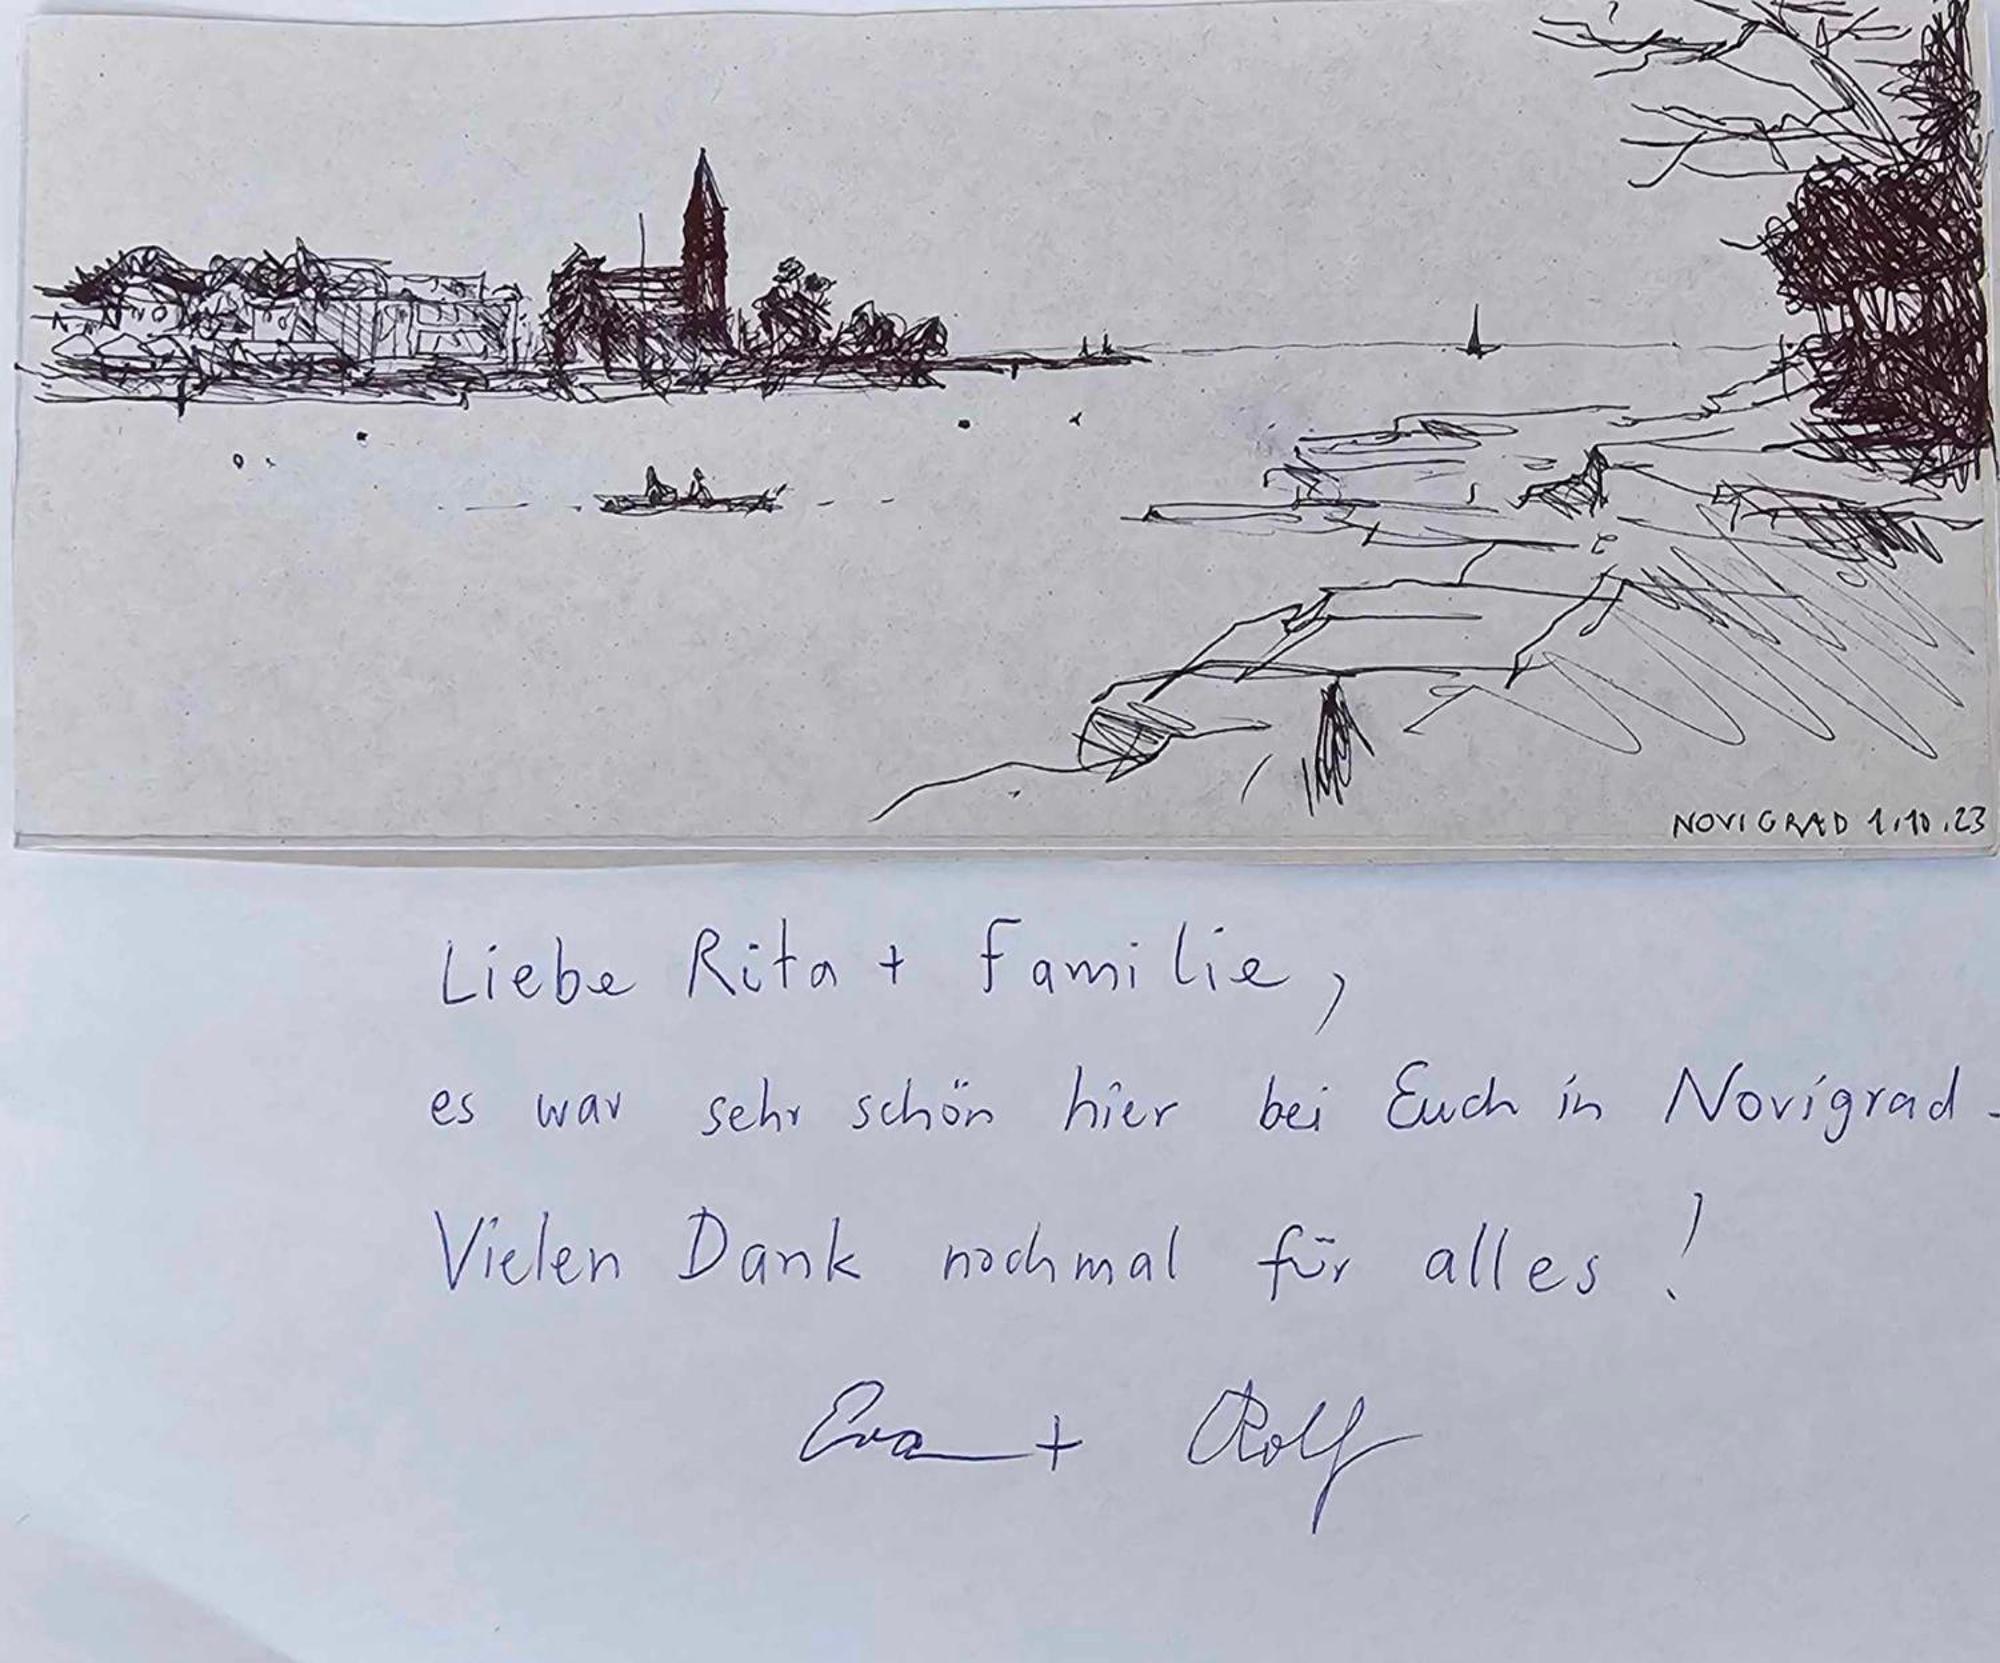 NOVIGRAD 1.10.23
Liebe Rita + Familie,
es war sehr schön hier bei Euch in Novigrad -
Vielen Dank nochmal für alles!
Eva + Rolf